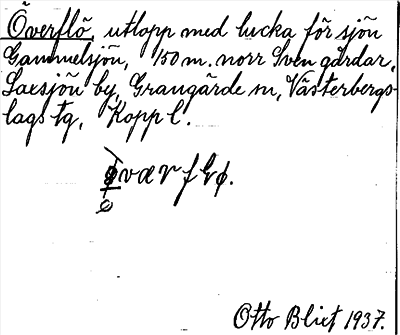 Överflö, utlopp med lucka för sjön
Gammelsjön, 150 m. norr Sven gårdar,
Saxsjön by, Grangärde sn, Västerbergs-
lags tg, Kopp l.
øværflø.
Otto Blixt 1937.